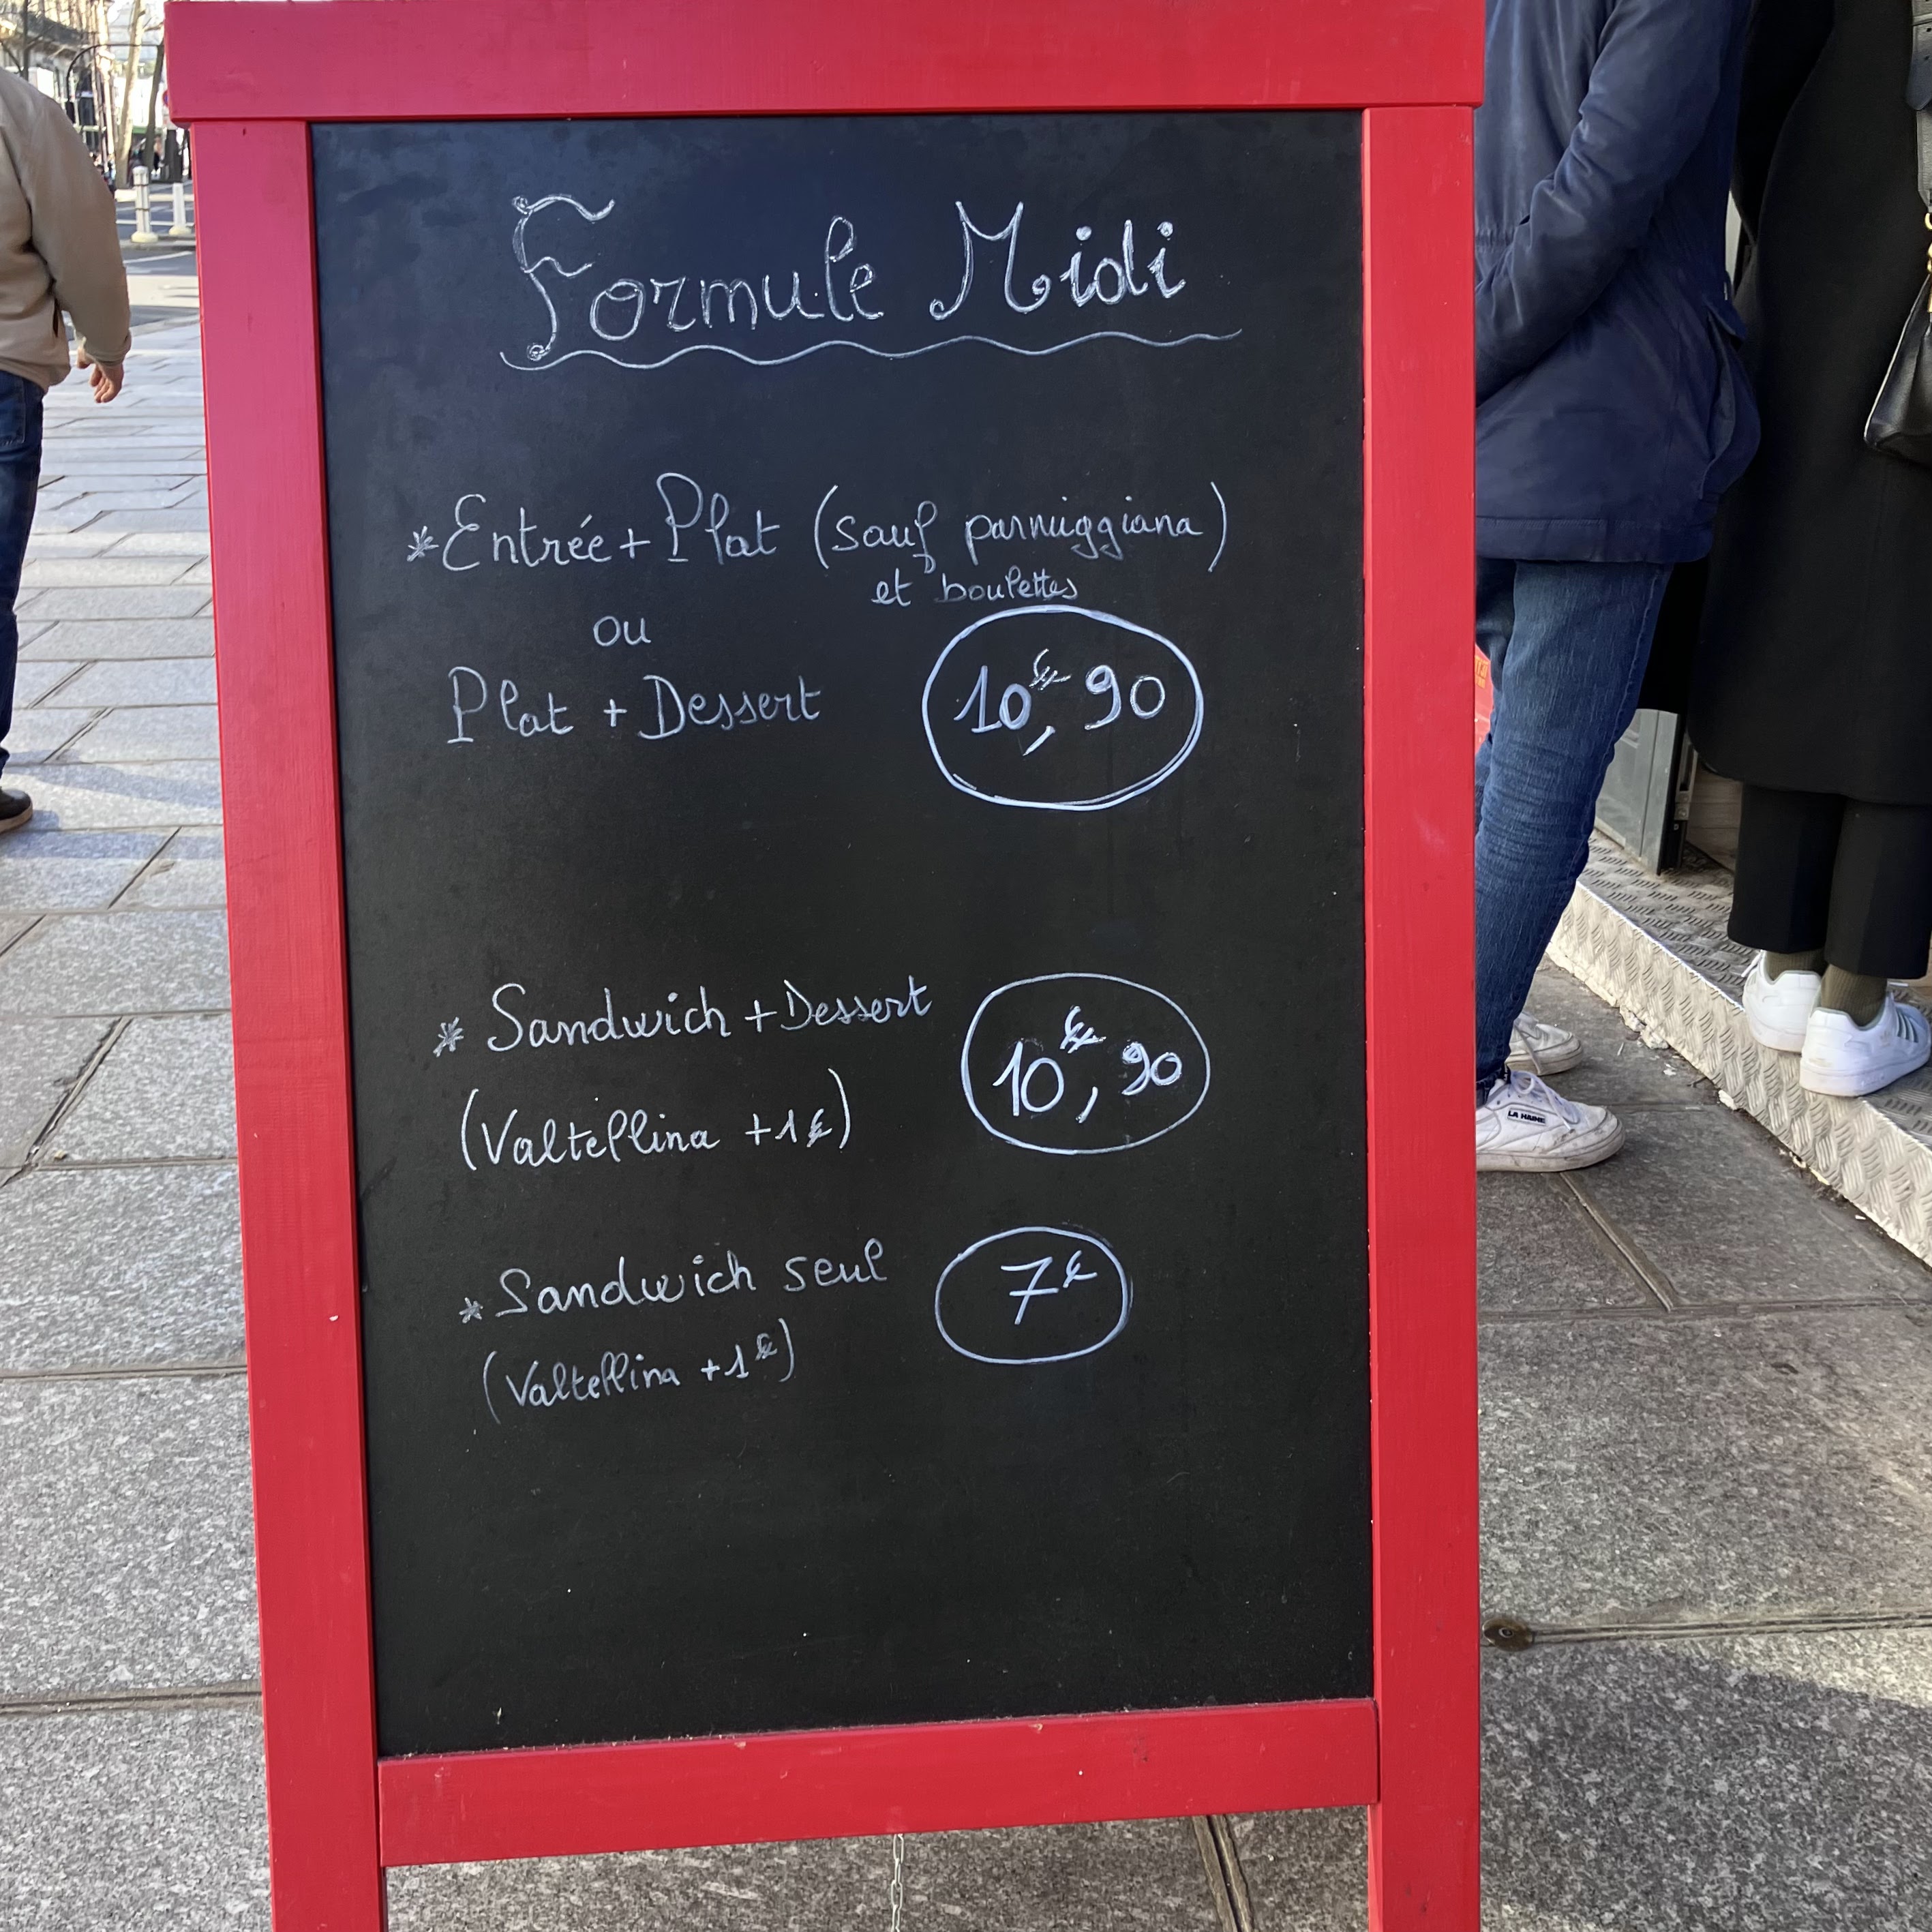 Formule Midi
*Entrée + Plat (sauf parmiggiana)
et boulettes
ou
Plat + Dessert
10€,90
* Sandwich + Dessert
10€,90
(Valtellina +1€)
* Sandwich seul
7€
(Valtellina +1€)
LA HAINE